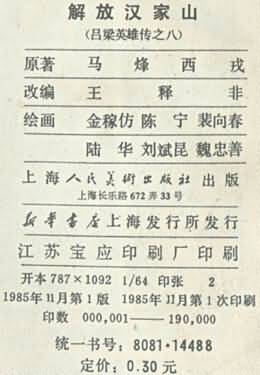 解放汉家山
(吕梁英雄传之八)
原著 马烽 西戎
改编 王释非
绘画 金稼仿 陈宁 裴向春
陆华 刘斌昆 魏忠善
上海人民美術出版社出版
上海长乐路 672 弄 33 号
新华書店上海发行所发行
江苏宝应印刷厂印刷
开本 787×1092 1/64 印张 2
1985年11月第1版 1985年11月第1次印刷
印数 000,001——190,000
统一书号: 8081·14488
定价: 0.30 元